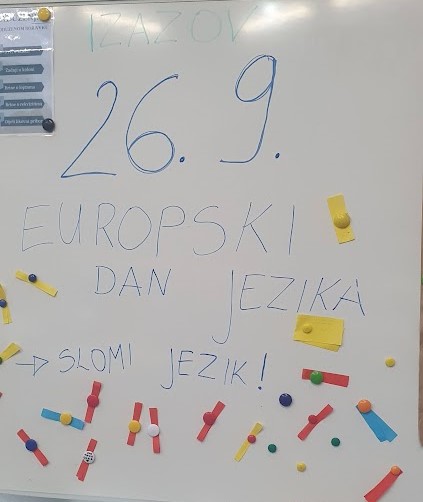 IZAZOV
26. 9.
EUROPSKI
DAN JEZIKA
→ SLOMI JEZIK!